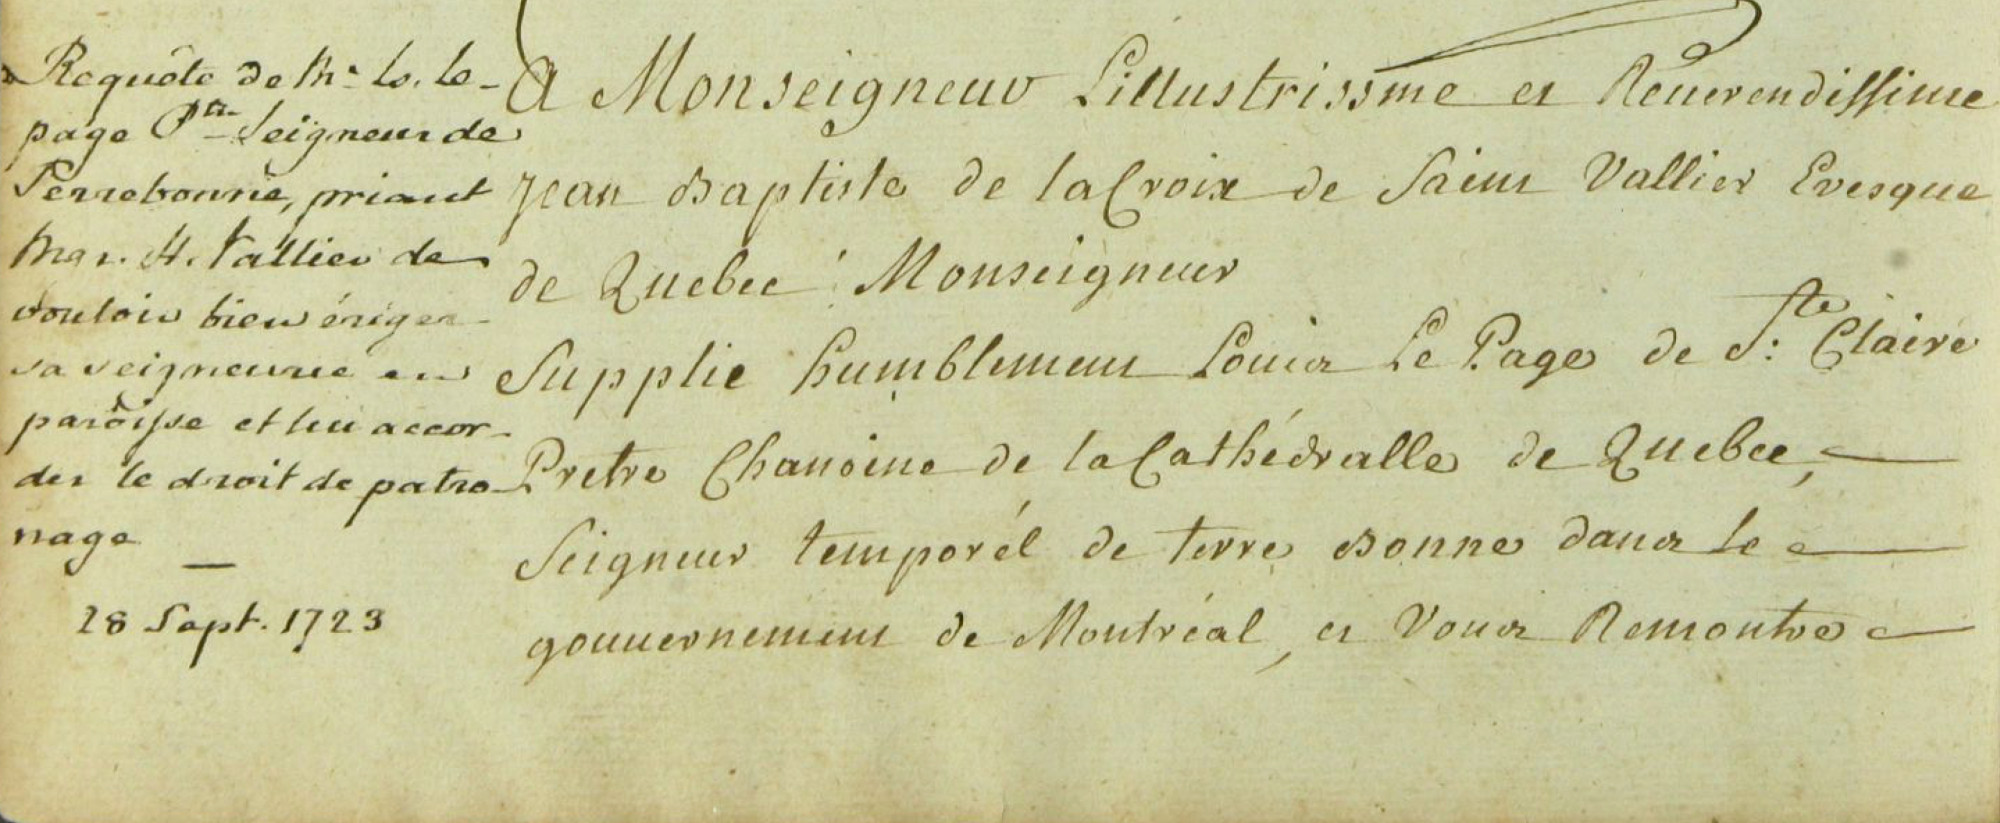 Requête de Mr. Ls. le-
page Ptre Seigneur de
Terrebonne, priant
Mgr. St. Vallier de
vouloir bien ériger
sa seigneurie en
paroisse et lui accor-
der le droit de patro-
nage
28 Sept. 1723
A Monseigneur Lillustrissme et Reuerendissime
Jean Baptiste de la Croix de Saint Vallier Evesque
de Quebec Monseigneur
Supplie humblement Louis Le Page de Ste: Claire
Pretre Chanoine de la Cathédralle de Quebec,
Seigneur temporél de terre Bonne dans le
gouuernement de Montréal, et Vous Remontre